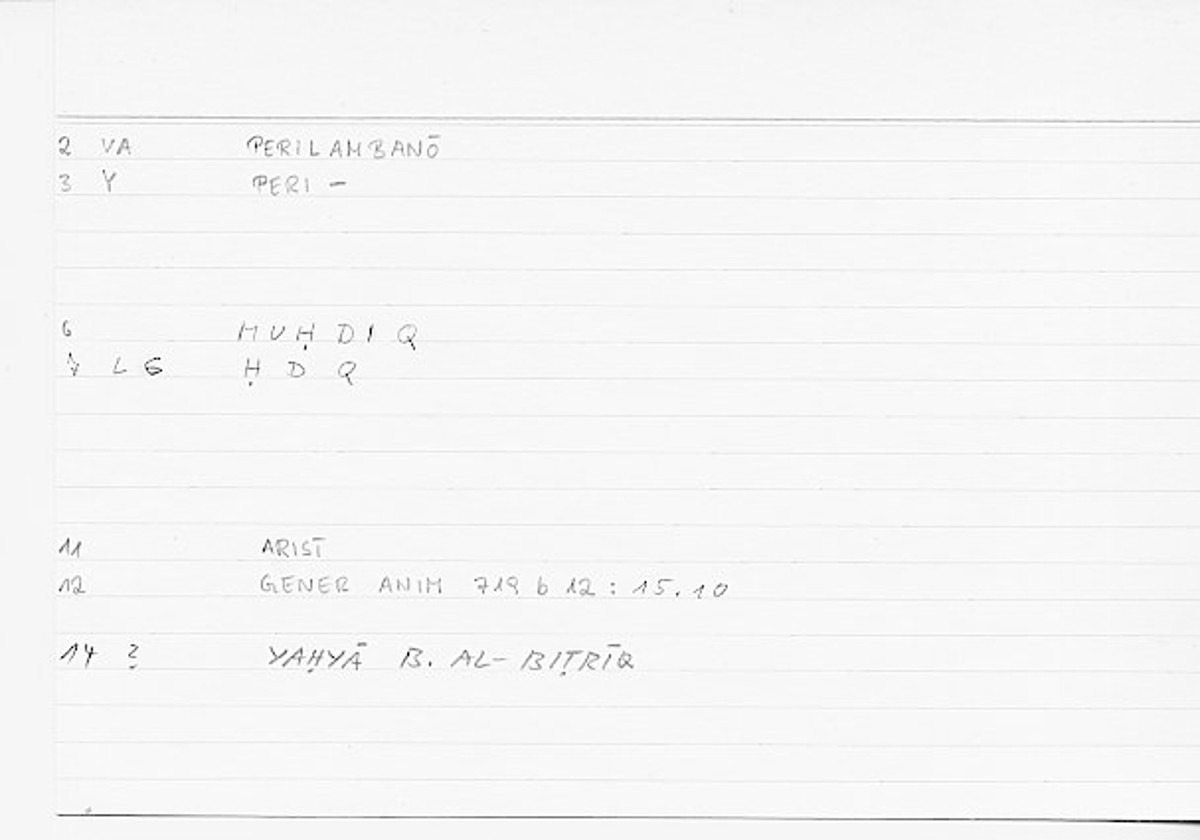 2 VA PERILAMBANŌ
3 Y PERI -
6 MUḤDIQ
LG ḤDQ
11 ARIST
12 GENER ANIM 719 b 12 : 15.10
14 ? YAḤYĀ B. AL-BIṬRĪQ